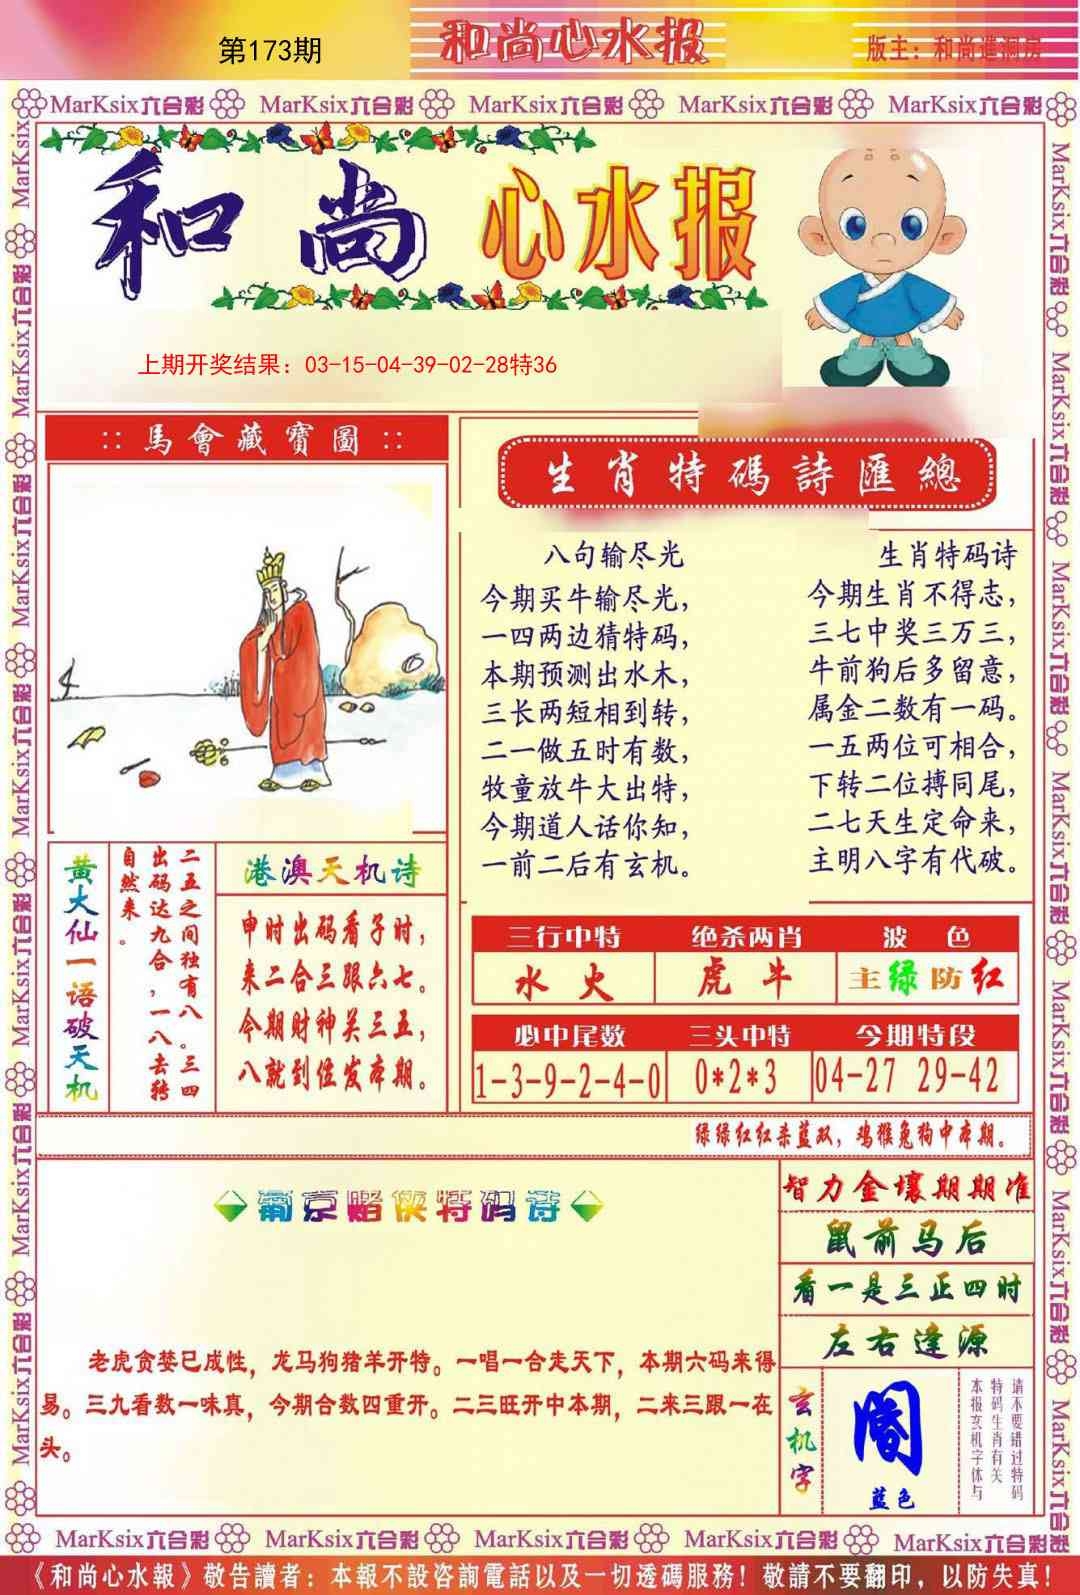 第173期
和尚心水报
版主：和尚進洞房
MarKsix六合彩 MarKsix六合彩 MarKsix六合彩 MarKsix六合彩 MarKsix六合彩
和尚 心水报
上期开奖结果：03-15-04-39-02-28特36
:: 馬會藏寶圖 ::
生肖特碼詩匯總
八句输尽光
今期买牛输尽光，
一四两边猜特码，
本期预测出水木，
三长两短相到转，
二一做五时有数，
牧童放牛大出特，
今期道人话你知，
一前二后有玄机。
生肖特码诗
今期生肖不得志，
三七中奖三万三，
牛前狗后多留意，
属金二数有一码。
一五两位可相合，
下转二位搏同尾，
二七天生定命来，
主明八字有代破。
黄大仙一语破天机
二五之间独有八。三四
出码达九合，一八去转
自然来。
港澳天机诗
申时出码看子时，
来二合三跟六七。
今期财神关三五，
八就到位发本期。
三行中特 绝杀两肖 波色
水火 虎牛 主绿防红
必中尾数 三头中特 今期特段
1-3-9-2-4-0 0*2*3 04-27 29-42
绿绿红红杀蓝双，鸡猴兔狗中本期。
葡京赌侠特码诗
老虎贪婪已成性，龙马狗猪羊开特。一唱一合走天下，本期六码来得
易。三九看数一味真，今期合数四重开。二三旺开中本期，二来三跟一在
头。
智力金壤期期准
鼠前马后
看一是三正四时
左右逢源
玄机字
蓝色
请不要错过特码
特码生肖有关
本报玄机字体与
MarKsix六合彩 MarKsix六合彩 MarKsix六合彩 MarKsix六合彩 MarKsix六合彩
《和尚心水報》敬告讀者：本報不設咨詢電話以及一切透碼服務！敬請不要翻印，以防失真！